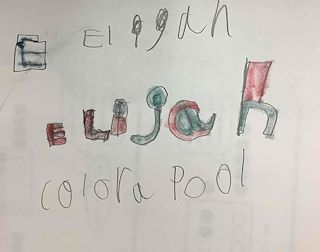 E Elijah
Elijah
colora Pool